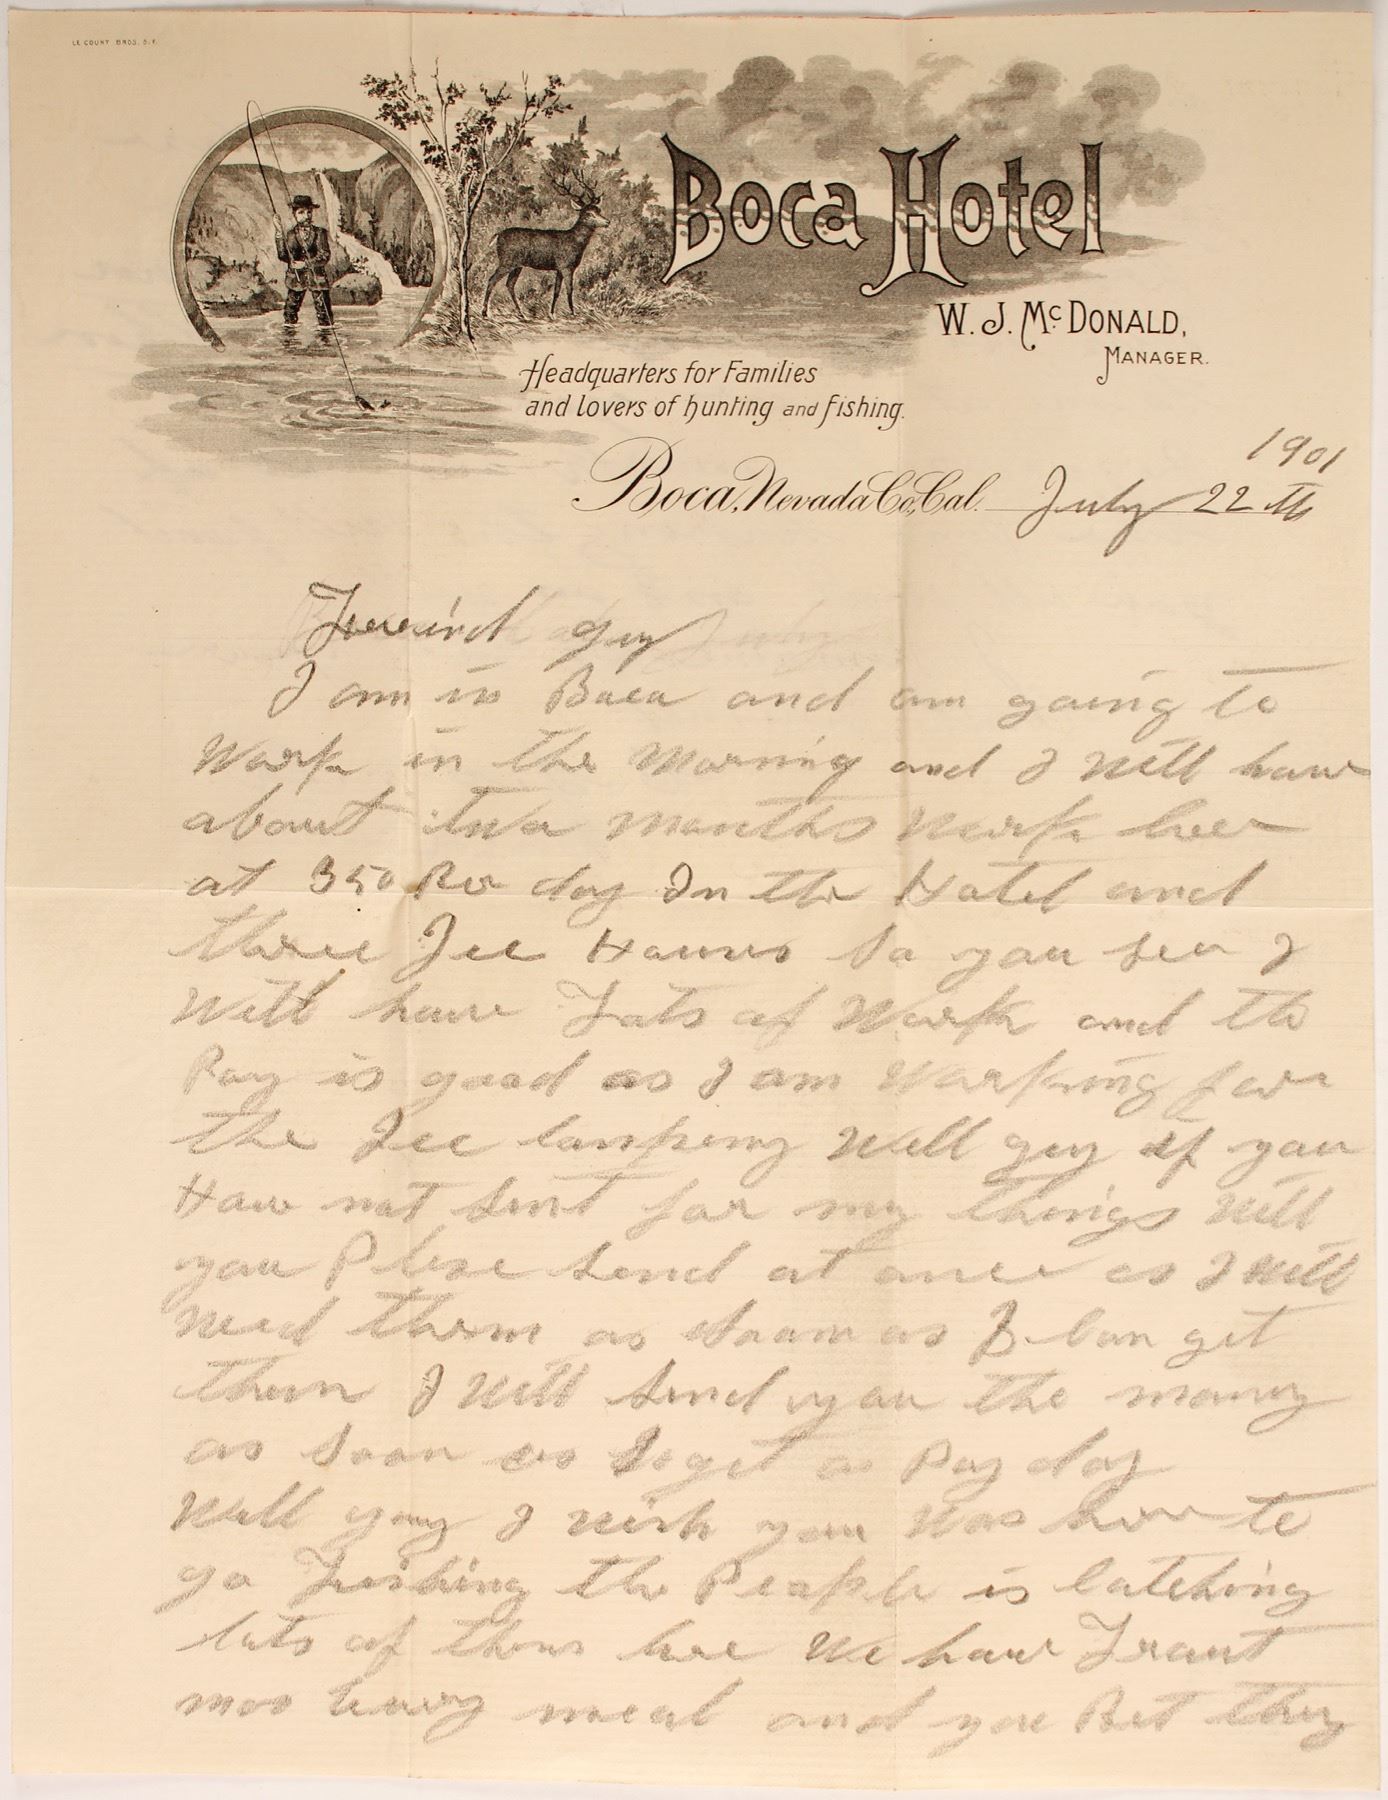 LE COUNT BROS. S. F.
Boca Hotel
W. J. McDonald,
Manager.
Headquarters for Families
and Lovers of hunting and fishing.
1901
Boca, Nevada Co., Cal. July 22 th
Freind Guy
I am in Boca and am going to
Work in the Morning and I Will have
about two Months Work here
at 350 Per day In the Hotel and
three Ice Houses So you see I
Will have Lots of Work and the
Pay is good as I am Working for
the Ice Company Well guy if you
Have not Sent for my things Will
you Plese Send at once as I Will
Need them as Soon as I Can get
them I Will Send you the money
as Soon as I get a Pay day
Well guy I Wish you Was here to
go Fishing the People is Catching
lots of them here We have Trout
meal and you Bet they